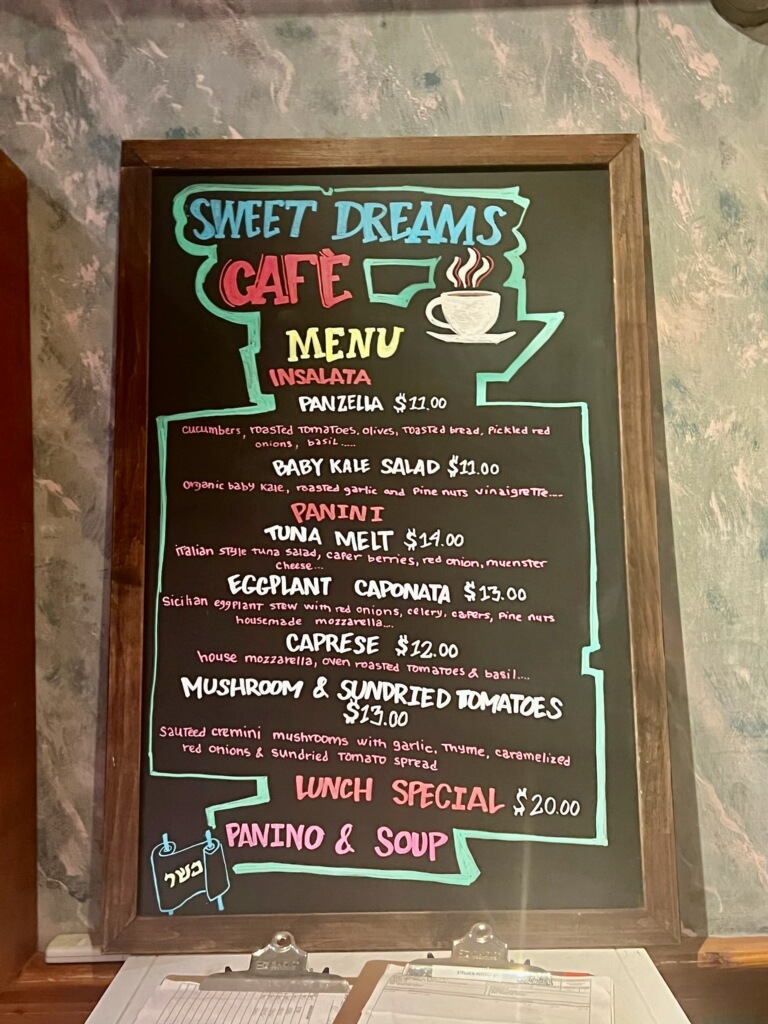 SWEET DREAMS
CAFÈ
MENU
INSALATA
PANZELLA $11.00
cucumbers, roasted tomatoes, olives, toasted bread, pickled red
onions, basil.....
BABY KALE SALAD $11.00
Organic baby kale, roasted garlic and pine nuts vinaigrette....
PANINI
TUNA MELT $14.00
italian style tuna salad, caper berries, red onion, muenster
cheese...
EGGPLANT CAPONATA $13.00
Sicilian eggplant stew with red onions, celery, capers, pine nuts
housemade mozzarella....
CAPRESE $12.00
house mozzarella, oven roasted tomatoes & basil....
MUSHROOM & SUNDRIED TOMATOES
$13.00
sauteed cremini mushrooms with garlic, thyme, caramelized
red onions & sundried tomato spread
LUNCH SPECIAL $20.00
PANINO & SOUP
כשר